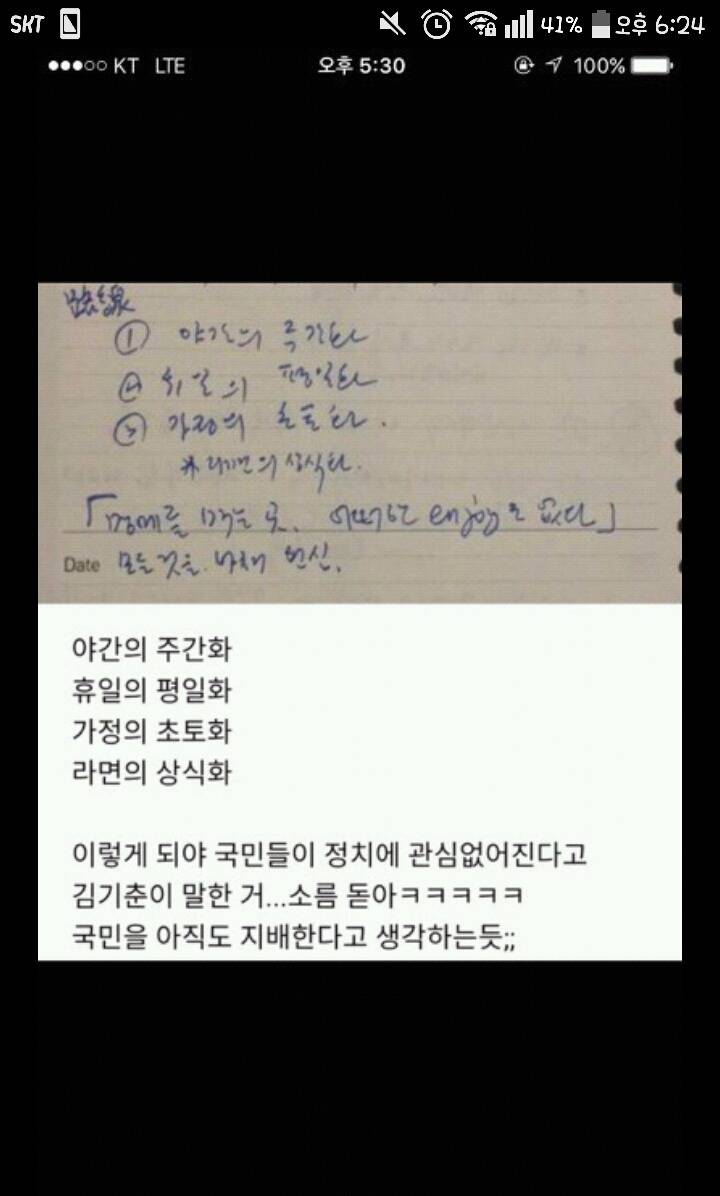 SKT 41% 오후 6:24
KT LTE 오후 5:30 100%
路線
① 야간의 주간화
② 휴일의 평일화
③ 가정의 초토화.
* 라면의 상식화.
「명예를 먹는 곳. 어떠한 은 없다」
Date 모든 것을. 바쳐 헌신.
야간의 주간화
휴일의 평일화
가정의 초토화
라면의 상식화
이렇게 되야 국민들이 정치에 관심없어진다고
김기춘이 말한 거...소름 돋아ㅋㅋㅋㅋㅋ
국민을 아직도 지배한다고 생각하는듯;;